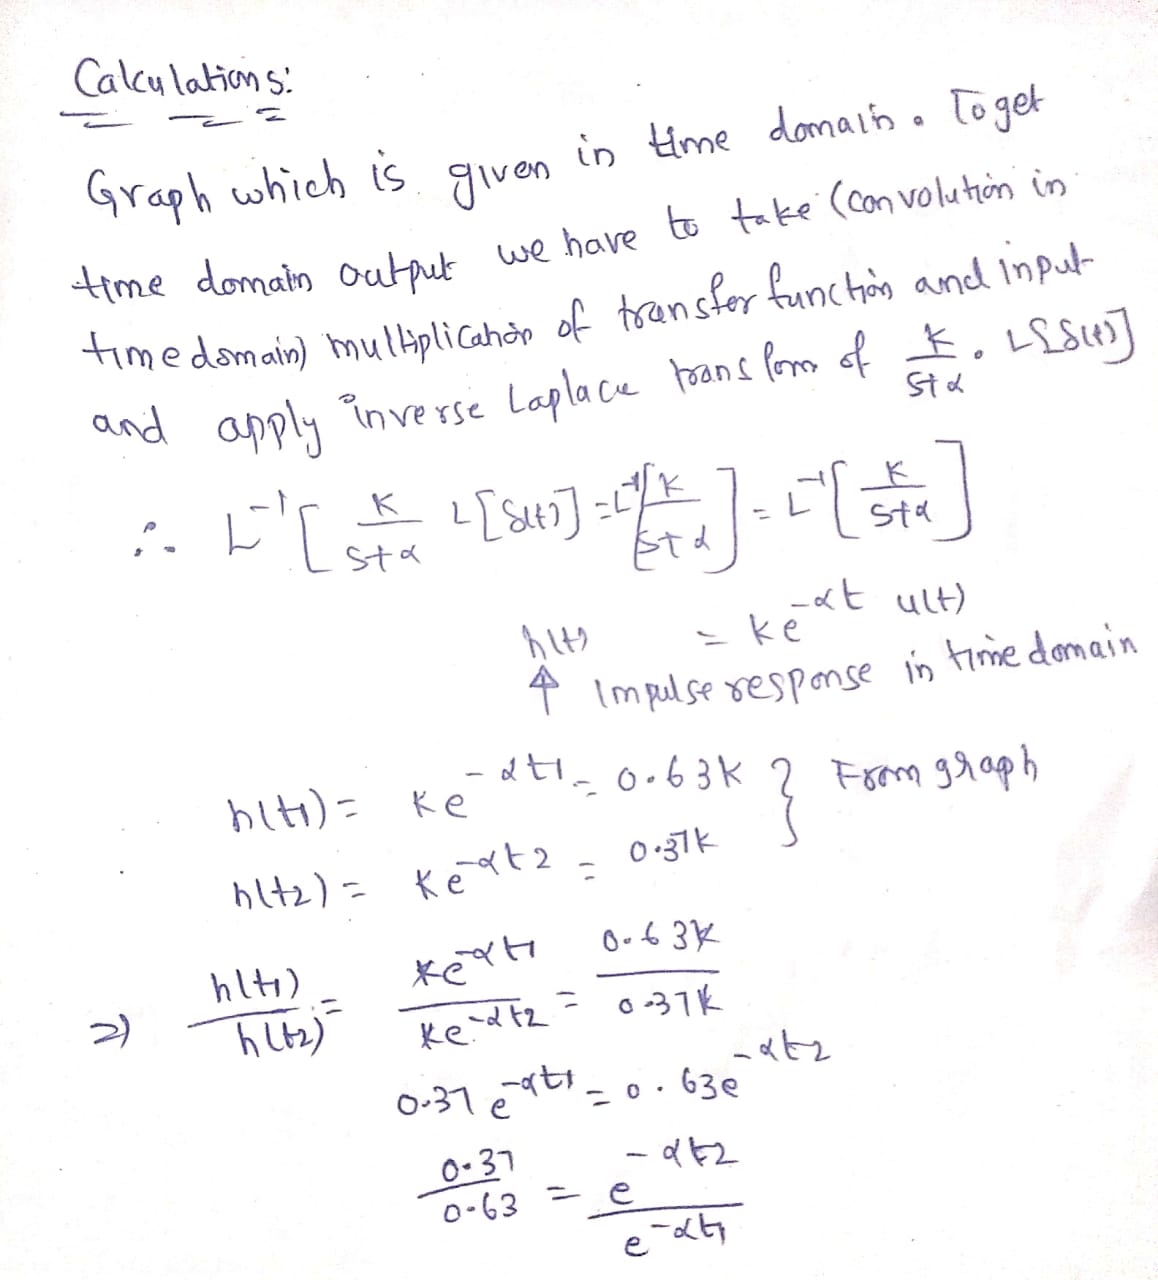 Calculations:
Graph which is given in time domain. To get
time domain output we have to take (convolution in
time domain) multiplication of transfer function and input
and apply inverse Laplace transform of K/(S+α) . L[δ(t)]
∴ L⁻¹[K/(S+α) L[δ(t)] = L⁻¹[K/(S+α)] = L⁻¹[K/(S+α)]
h(t) = Ke^(-αt) u(t)
↑ Impulse response in time domain
h(t1) = Ke^(-αt1) = 0.63K } From graph
h(t2) = Ke^(-αt2) = 0.37K
⇒ h(t1)/h(t2) = Ke^(-αt1)/Ke^(-αt2) = 0.63K/0.37K
0.37 e^(-αt1) = 0.63e^(-αt2)
0.37/0.63 = e^(-αt2)/e^(-αt1)